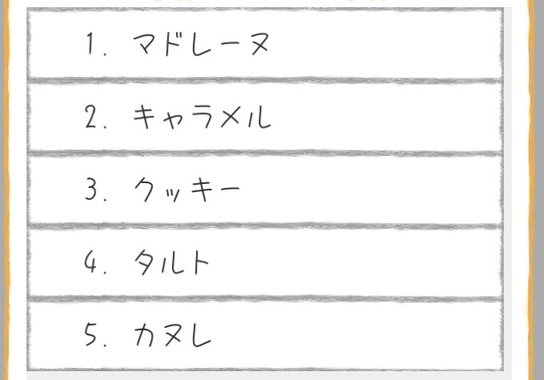 1. マドレーヌ
2. キャラメル
3. クッキー
4. タルト
5. カヌレ